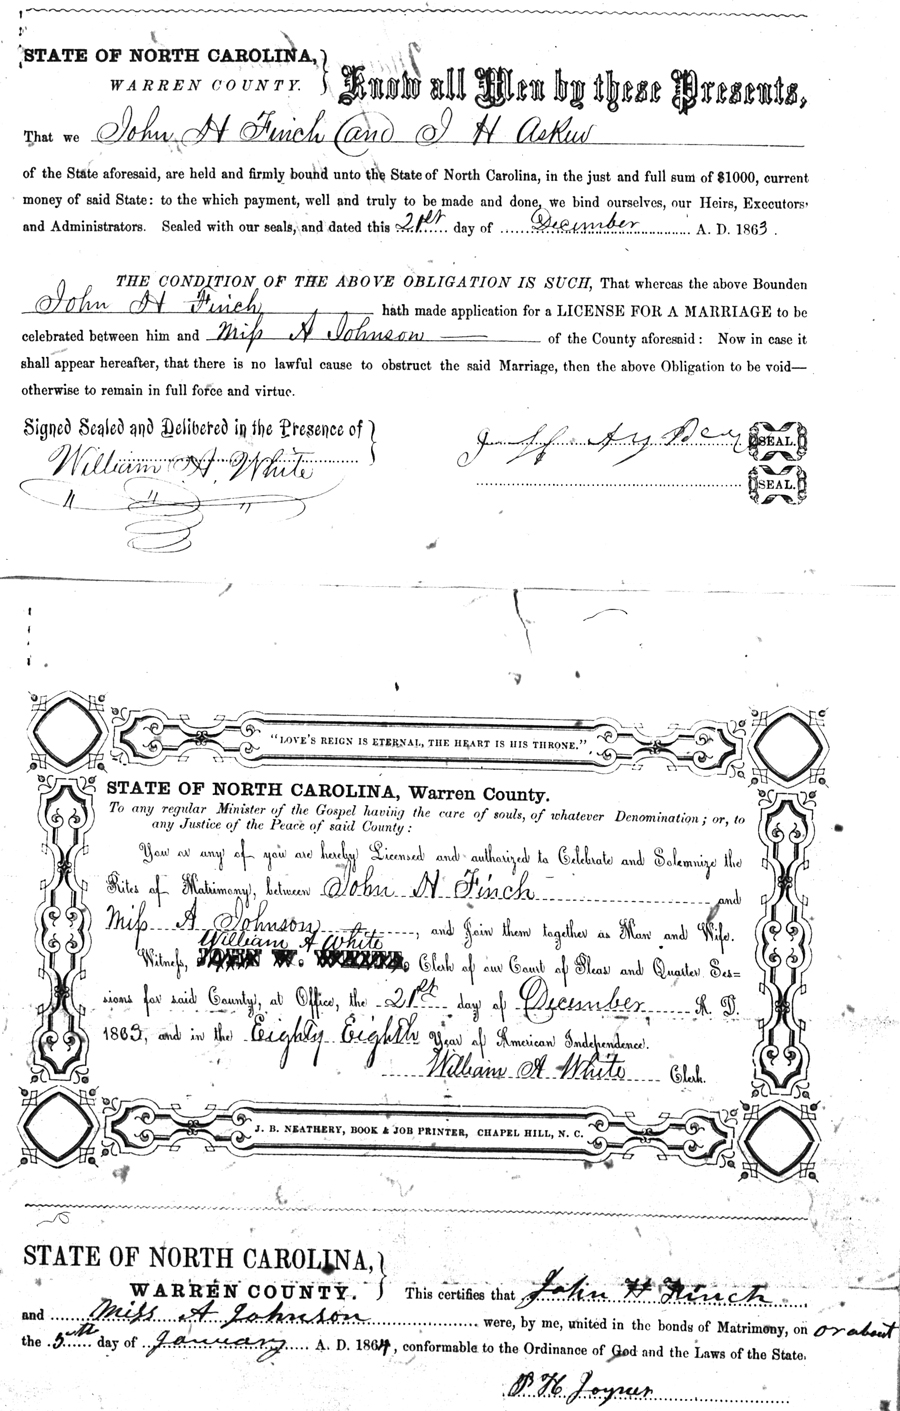 STATE OF NORTH CAROLINA,
WARREN COUNTY.
Know all Men by these Presents,
That we John H Finch and J H Askew
of the State aforesaid, are held and firmly bound unto the State of North Carolina, in the just and full sum of $1000, current
money of said State: to the which payment, well and truly to be made and done, we bind ourselves, our Heirs, Executors
and Administrators. Sealed with our seals, and dated this 21st day of December A. D. 1863.
THE CONDITION OF THE ABOVE OBLIGATION IS SUCH, That whereas the above Bounden
John H Finch hath made application for a LICENSE FOR A MARRIAGE to be
celebrated between him and Miss A Johnson of the County aforesaid: Now in case it
shall appear hereafter, that there is no lawful cause to obstruct the said Marriage, then the above Obligation to be void—
otherwise to remain in full force and virtue.
Signed Sealed and Delibered in the Presence of
William A. White
SEAL.
SEAL.
"LOVE'S REIGN IS ETERNAL, THE HEART IS HIS THRONE."
STATE OF NORTH CAROLINA, Warren County.
To any regular Minister of the Gospel having the care of souls, of whatever Denomination; or, to
any Justice of the Peace of said County:
You or any of you are hereby Licensed and authorized to Celebrate and Solemnize the
Rites of Matrimony, between John H Finch and
Miss A Johnson, and Join them together as Man and Wife.
William A White
Witness, Clerk of our Court of Pleas and Quarter Ses=
sions for said County, at Office, the 21st day of December A. D.
1863, and in the Eighty Eighth Year of American Independence.
William A White Clerk.
J. B. NEATHERY, BOOK & JOB PRINTER, CHAPEL HILL, N. C.
STATE OF NORTH CAROLINA,
WARREN COUNTY.
This certifies that John H Finch
and Miss A Johnson were, by me, united in the bonds of Matrimony, on or about
the 5th day of January A. D. 1864, conformable to the Ordinance of God and the Laws of the State.
P H Joyner